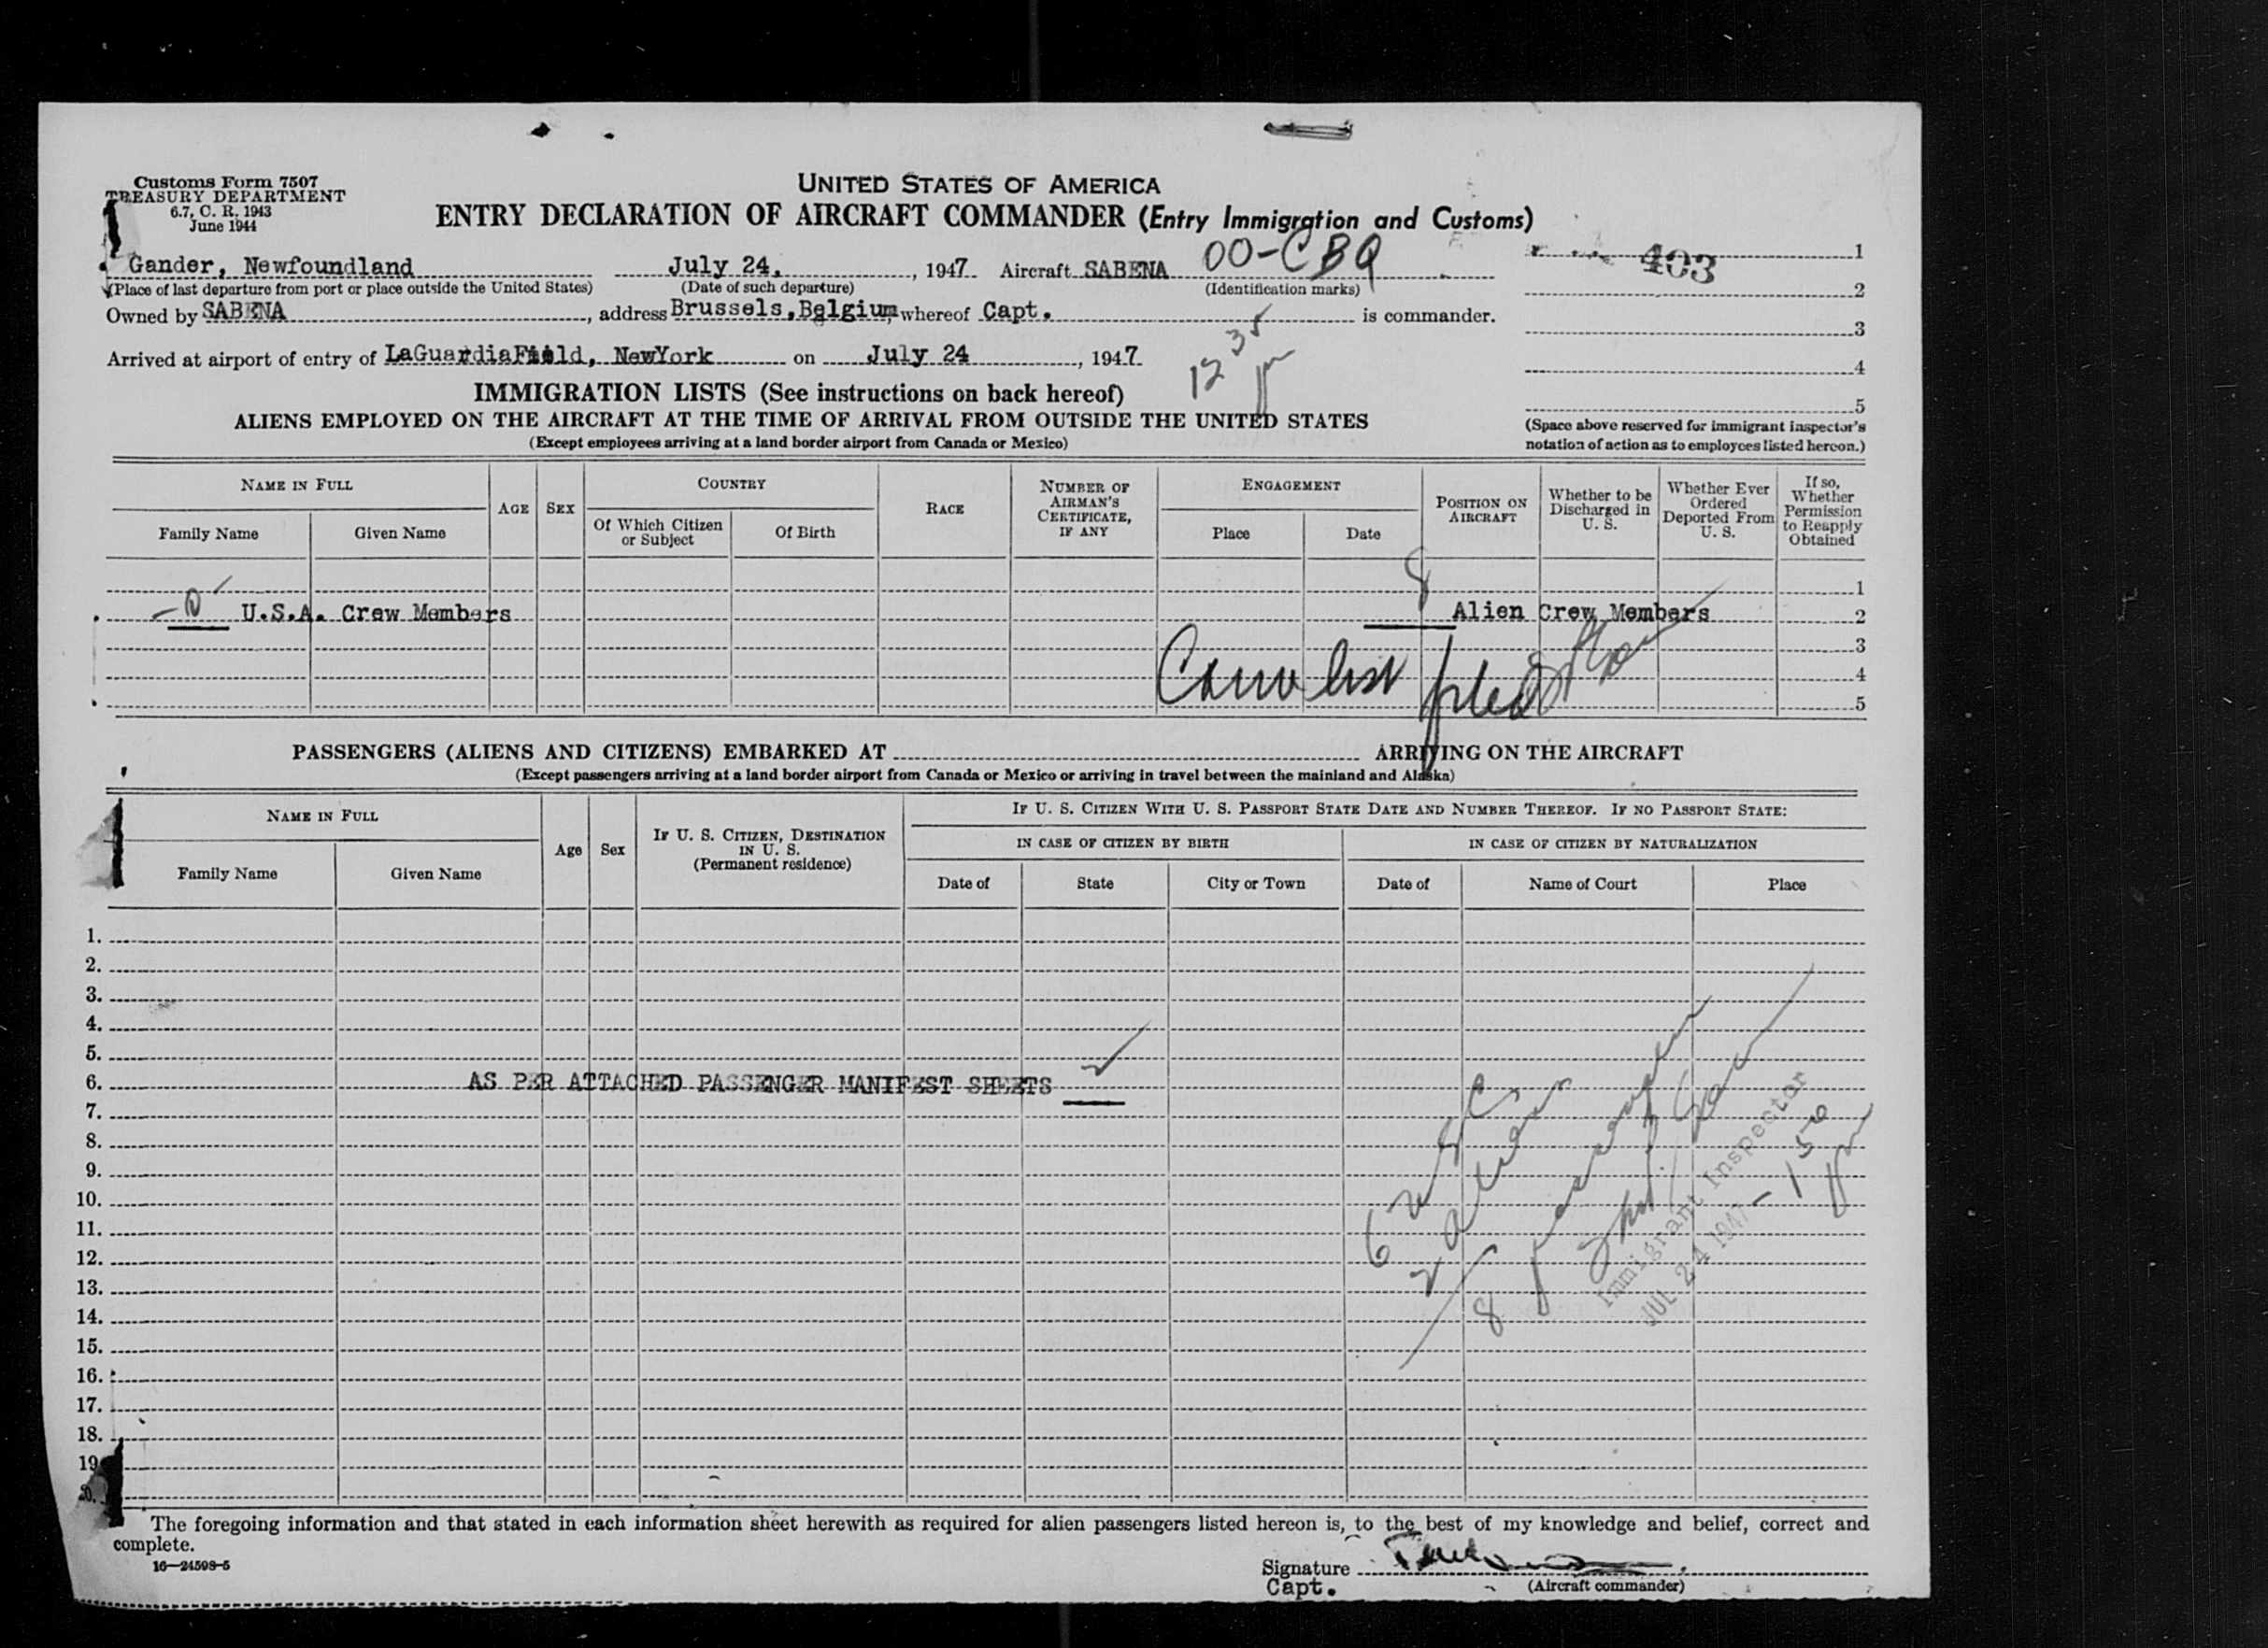 Customs Form 7507
TREASURY DEPARTMENT
6.7, C. R. 1943
June 1944
UNITED STATES OF AMERICA
ENTRY DECLARATION OF AIRCRAFT COMMANDER (Entry Immigration and Customs)
403
Gander, Newfoundland July 24, , 1947 Aircraft SABENA OO-CBQ
(Place of last departure from port or place outside the United States) (Date of such departure) (Identification marks)
Owned by SABENA , address Brussels, Belgium whereof Capt. is commander.
Arrived at airport of entry of LaGuardiaField, NewYork on July 24 , 1947
12 35 pm
1
2
3
4
5
(Space above reserved for immigrant inspector's
notation of action as to employees listed hereon.)
IMMIGRATION LISTS (See instructions on back hereof)
ALIENS EMPLOYED ON THE AIRCRAFT AT THE TIME OF ARRIVAL FROM OUTSIDE THE UNITED STATES
(Except employees arriving at a land border airport from Canada or Mexico)
NAME IN FULL
Family Name
Given Name
AGE
SEX
COUNTRY
Of Which Citizen
or Subject
Of Birth
RACE
NUMBER OF
AIRMAN'S
CERTIFICATE,
IF ANY
ENGAGEMENT
Place
Date
POSITION ON
AIRCRAFT
Whether to be
Discharged in
U. S.
Whether Ever
Ordered
Deported From
U. S.
If so,
Whether
Permission
to Reapply
Obtained
1
-0- U.S.A. Crew Members 8 Alien Crew Members 2
3
4
5
list
PASSENGERS (ALIENS AND CITIZENS) EMBARKED AT ARRIVING ON THE AIRCRAFT
(Except passengers arriving at a land border airport from Canada or Mexico or arriving in travel between the mainland and Alaska)
NAME IN FULL
Family Name
Given Name
Age
Sex
IF U. S. CITIZEN, DESTINATION
IN U. S.
(Permanent residence)
IF U. S. CITIZEN WITH U. S. PASSPORT STATE DATE AND NUMBER THEREOF. IF NO PASSPORT STATE:
IN CASE OF CITIZEN BY BIRTH
Date of
State
City or Town
IN CASE OF CITIZEN BY NATURALIZATION
Date of
Name of Court
Place
1.
2.
3.
4.
5.
6. AS PER ATTACHED PASSENGER MANIFEST SHEETS 2
7.
8.
9.
10.
11.
12.
13.
14.
15.
16.
17.
18.
19.
20.
6 USC
2 aliens
8 passengers
Immigrant Inspector
JUL 24 1947 - 1 50 pm
The foregoing information and that stated in each information sheet herewith as required for alien passengers listed hereon is, to the best of my knowledge and belief, correct and
complete.
16—24598-5
Signature
Capt.
(Aircraft commander)